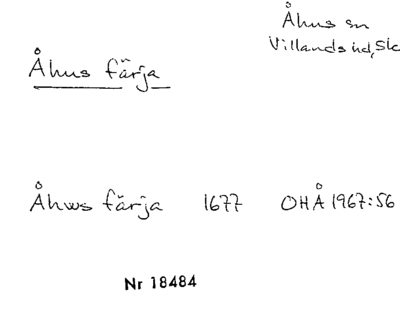 Åhus sn
Villands hd, Sk
Åhus färja
Åhws färja 1677 OHÅ 1967:56
Nr 18484